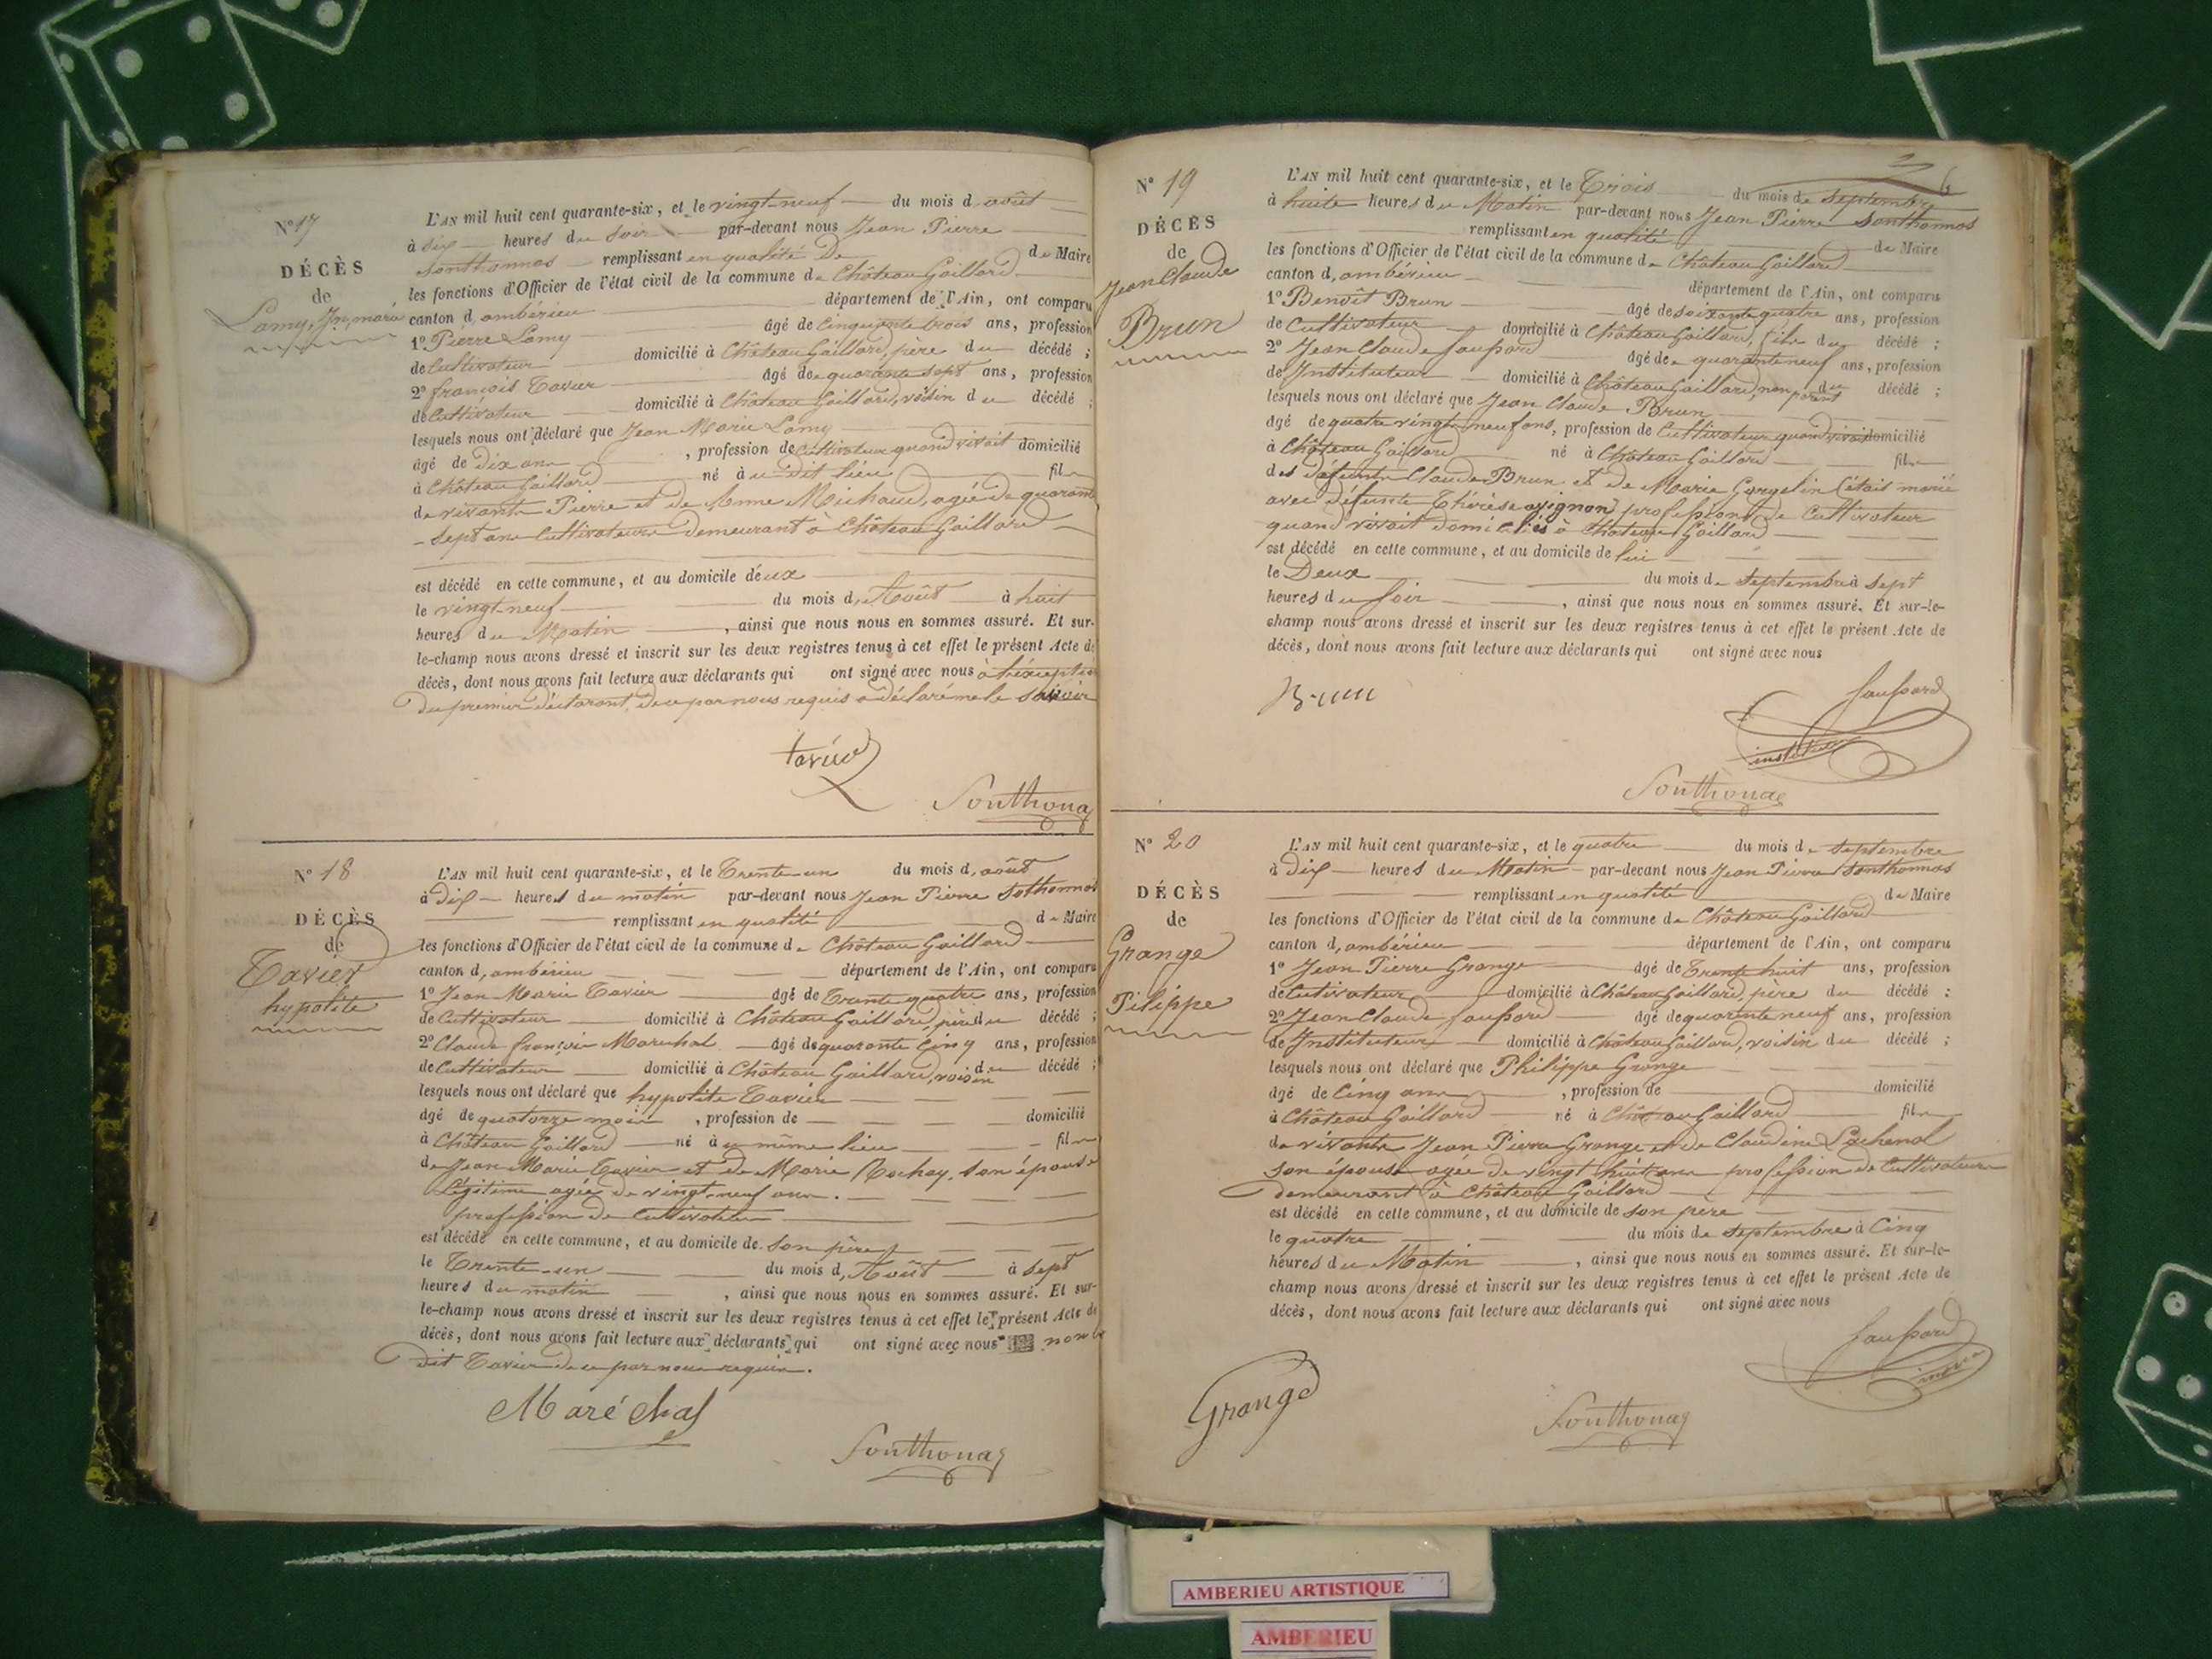 N° 17
DÉCÈS
de
Lamy, Jn, marie
L'AN mil huit cent quarante-six, et le vingt-neuf du mois d août
à six heures du soir par-devant nous Jean Pierre
Sonthonnas remplissant en qualité De du Maire
les fonctions d'Officier de l'état civil de la commune de Château Gaillard
canton d, ambérieu département de l'Ain, ont comparu
1° Pierre Lamy âgé de Cinquante trois ans, profession
de Cultivateur domicilié à Château Gaillard, père du décédé ;
2° françois Tavier âgé de quarante sept ans, profession
de Cultivateur domicilié à Château Gaillard, voisin du décédé ;
lesquels nous ont déclaré que Jean Marie Lamy
âgé de Dix ans , profession de Cultivateur quand vivait domicilié
à Château Gaillard né au Dit lieu fils
de vivants Pierre et de Anne Michaud, agée de quarante
- sept ans Cultivateurs demeurant à Château Gaillard
est décédé en cette commune, et au domicile d'eux
le vingt-neuf du mois d, Août à huit
heures du Matin , ainsi que nous nous en sommes assuré. Et sur-
le-champ nous avons dressé et inscrit sur les deux registres tenus à cet effet le présent Acte de
décès, dont nous avons fait lecture aux déclarants qui ont signé avec nous à l'éxception
du premier déclarant, de ce par nous requis a déclaré ne le savoir
tavier
Sonthonas
N° 18
DÉCÈS
de
Tavier
hypolite
L'AN mil huit cent quarante-six, et le Trente-un du mois d, août
à Dix heures du matin par-devant nous Jean Pierre Sothonnas
remplissant en qualité de Maire
les fonctions d'Officier de l'état civil de la commune de Château Gaillard
canton d, ambérieu département de l'Ain, ont comparu
1° Jean Marie Tavier âgé de Trente quatre ans, profession
de Cultivateur domicilié à Château Gaillard, père du décédé ;
2° Claude françois Marechal âgé de quarante Cinq ans, profession
de Cultivateur domicilié à Château Gaillard, voisin du décédé ;
lesquels nous ont déclaré que hypolite Tavier
âgé de quatorze mois , profession de domicilié
à Château Gaillard né au même lieu fils
de Jean Marie Tavier et de Marie Rochay, son épouse
Légitime agée de vingt-neuf ans.
profession de Cultivateur
est décédé en cette commune, et au domicile de son père
le Trente-un du mois d, Août à sept
heures du matin , ainsi que nous nous en sommes assuré. Et sur-
le-champ nous avons dressé et inscrit sur les deux registres tenus à cet effet le présent Acte de
décès, dont nous avons fait lecture aux déclarants qui ont signé avec nous non le
dit Tavier de ce par nous requis.
Maréchal
Sonthonas
6
N° 19
DÉCÈS
de
Jean Claude
Brun
L'AN mil huit cent quarante-six, et le Trois du mois de septembre
à huite heures du Matin par-devant nous Jean Pierre Sonthonnas
remplissant en qualité de Maire
les fonctions d'Officier de l'état civil de la commune de Château Gaillard
canton d, ambérieu département de l'Ain, ont comparu
1° Benoît Brun âgé de soixante quatre ans, profession
de Cultivateur domicilié à Château Gaillard, fils du décédé ;
2° Jean Claude faussard âgé de quarante neuf ans, profession
de Instituteur domicilié à Château Gaillard, non parent du décédé ;
lesquels nous ont déclaré que Jean Claude Brun
âgé de quatre vingt-neuf ans, profession de Cultivateur quand vivait domicilié
à Château Gaillard né à Château Gaillard fils
des Défunts Claude Brun et de Marie (était marié
avec défunte Thérèse avignon) profession de Cultivateur
quand vivait domiciliés à Château Gaillard
est décédé en cette commune, et au domicile de lui
le Deux du mois de septembre à sept
heures du soir , ainsi que nous nous en sommes assuré. Et sur-le-
champ nous avons dressé et inscrit sur les deux registres tenus à cet effet le présent Acte de
décès, dont nous avons fait lecture aux déclarants qui ont signé avec nous
Brun
faussard
Sonthonas
N° 20
DÉCÈS
de
Grange
Pilippe
L'AN mil huit cent quarante-six, et le quatre du mois de septembre
à Dix heures du Matin par-devant nous Jean Pierre Sonthonnas
remplissant en qualité de Maire
les fonctions d'Officier de l'état civil de la commune de Château Gaillard
canton d, ambérieu département de l'Ain, ont comparu
1° Jean Pierre Grange âgé de Trente huit ans, profession
de Cultivateur domicilié à Château Gaillard, père du décédé ;
2° Jean Claude faussard âgé de quarante neuf ans, profession
de Instituteur domicilié à Château Gaillard, voisin du décédé ;
lesquels nous ont déclaré que Philippe Grange
âgé de Cinq ans , profession de domicilié
à Château Gaillard né à Château Gaillard fils
de vivants Jean Pierre Grange et de Claudine Lachenal
son épouse agée de vingt huit ans profession de Cultivateurs
demeurant à Château Gaillard
est décédé en cette commune, et au domicile de son père
le quatre du mois de septembre à Cinq
heures du Matin , ainsi que nous nous en sommes assuré. Et sur-le-
champ nous avons dressé et inscrit sur les deux registres tenus à cet effet le présent Acte de
décès, dont nous avons fait lecture aux déclarants qui ont signé avec nous
faussard
Grange
Sonthonas
AMBERIEU ARTISTIQUE
AMBERIEU